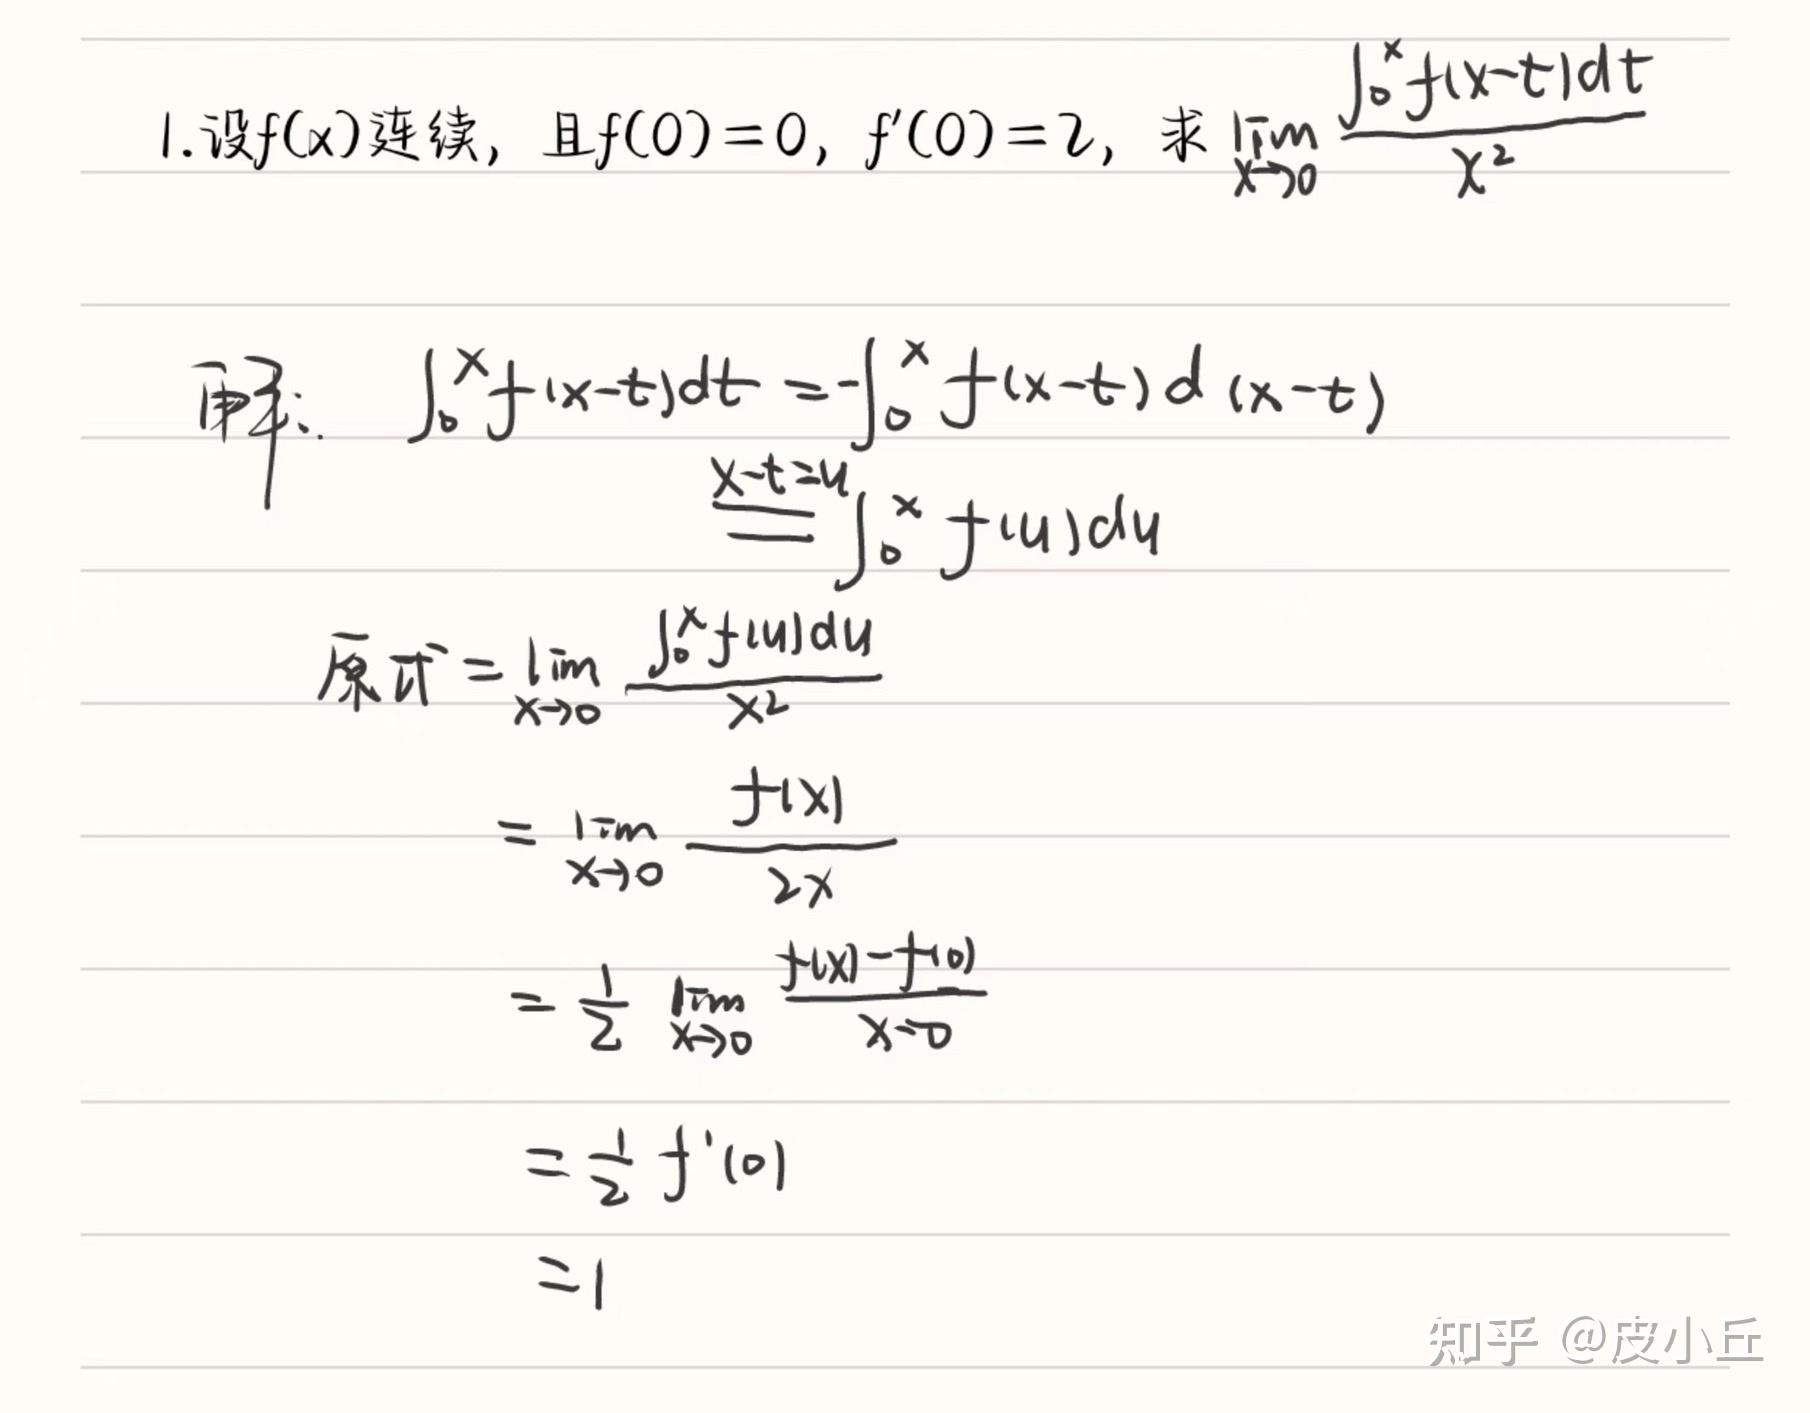 1.设f(x)连续，且f(0)=0，f'(0)=2，求 lim x→0 ∫₀ˣ f(x-t)dt / x²
解： ∫₀ˣ f(x-t)dt = -∫₀ˣ f(x-t) d (x-t)
x-t=u
= ∫₀ˣ f(u)du
原式 = lim x→0 ∫₀ˣ f(u)du / x²
= lim x→0 f(x) / 2x
= 1/2 lim x→0 f(x)-f(0) / x-0
= 1/2 f'(0)
=1
知乎 @皮小丘